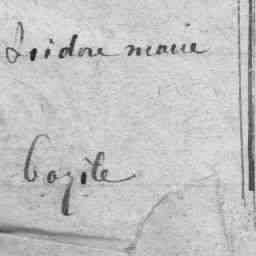 Isidore marie
Bazile